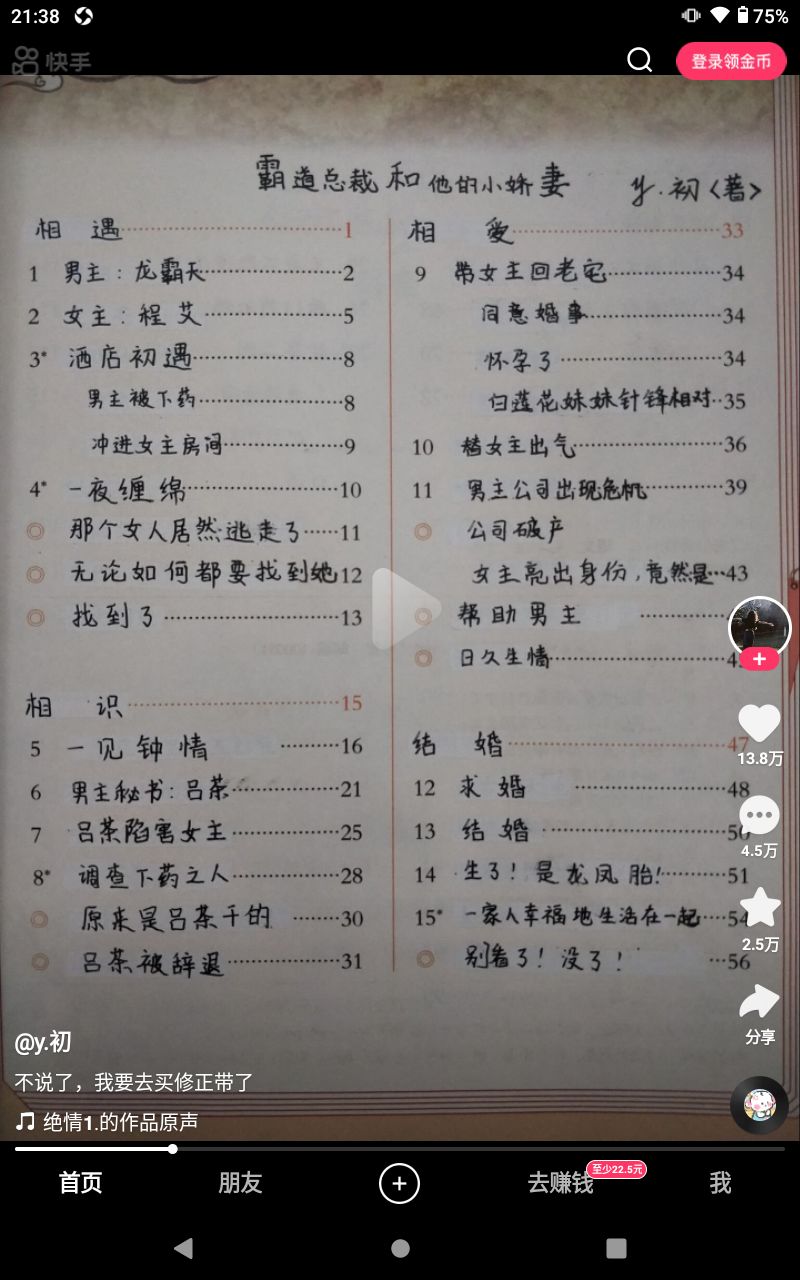 21:38
75%
快手
登录领金币
霸道总裁和他的小娇妻 y.初<著>
相 遇 1
1 男主:龙霸天 2
2 女主:程艾 5
3* 酒店初遇 8
男主被下药 8
冲进女主房间 9
4* 一夜缠绵 10
那个女人居然逃走了 11
无论如何都要找到她 12
找到了 13
相 识 15
5 一见钟情 16
6 男主秘书:吕茶 21
7 吕茶陷害女主 25
8* 调查下药之人 28
原来是吕茶干的 30
吕茶被辞退 31
相 爱 33
9 带女主回老宅 34
同意婚事 34
怀孕了 34
白莲花妹妹针锋相对 35
10 替女主出气 36
11 男主公司出现危机 39
公司破产
女主亮出身份,竟然是 43
帮助男主
日久生情
结 婚 47
12 求婚 48
13 结婚 50
14 生了!是龙凤胎! 51
15* 一家人幸福地生活在一起 54
别看了!没了! 56
13.8万
4.5万
2.5万
分享
@y.初
不说了，我要去买修正带了
绝情1.的作品原声
首页
朋友
去赚钱
至少22.5元
我